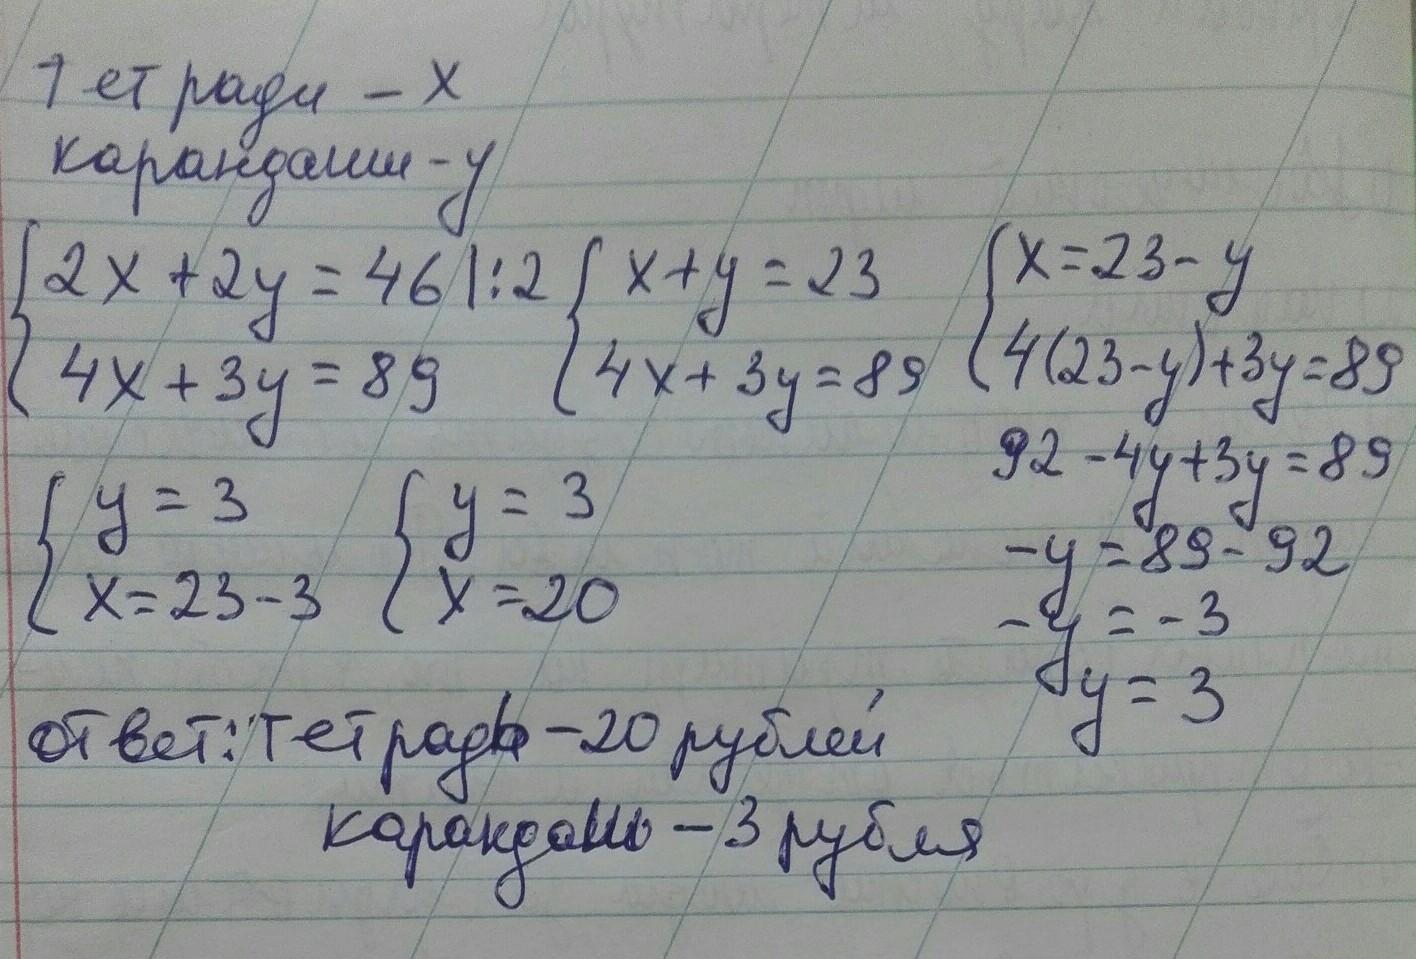 Тетради - x
карандаши - y
{2x + 2y = 46 |:2
4x + 3y = 89
{x + y = 23
4x + 3y = 89
{x = 23 - y
4(23 - y) + 3y = 89
92 - 4y + 3y = 89
- y = 89 - 92
- y = - 3
y = 3
{y = 3
x = 23 - 3
{y = 3
x = 20
Ответ: Тетрадь - 20 рублей
карандашь - 3 рубля